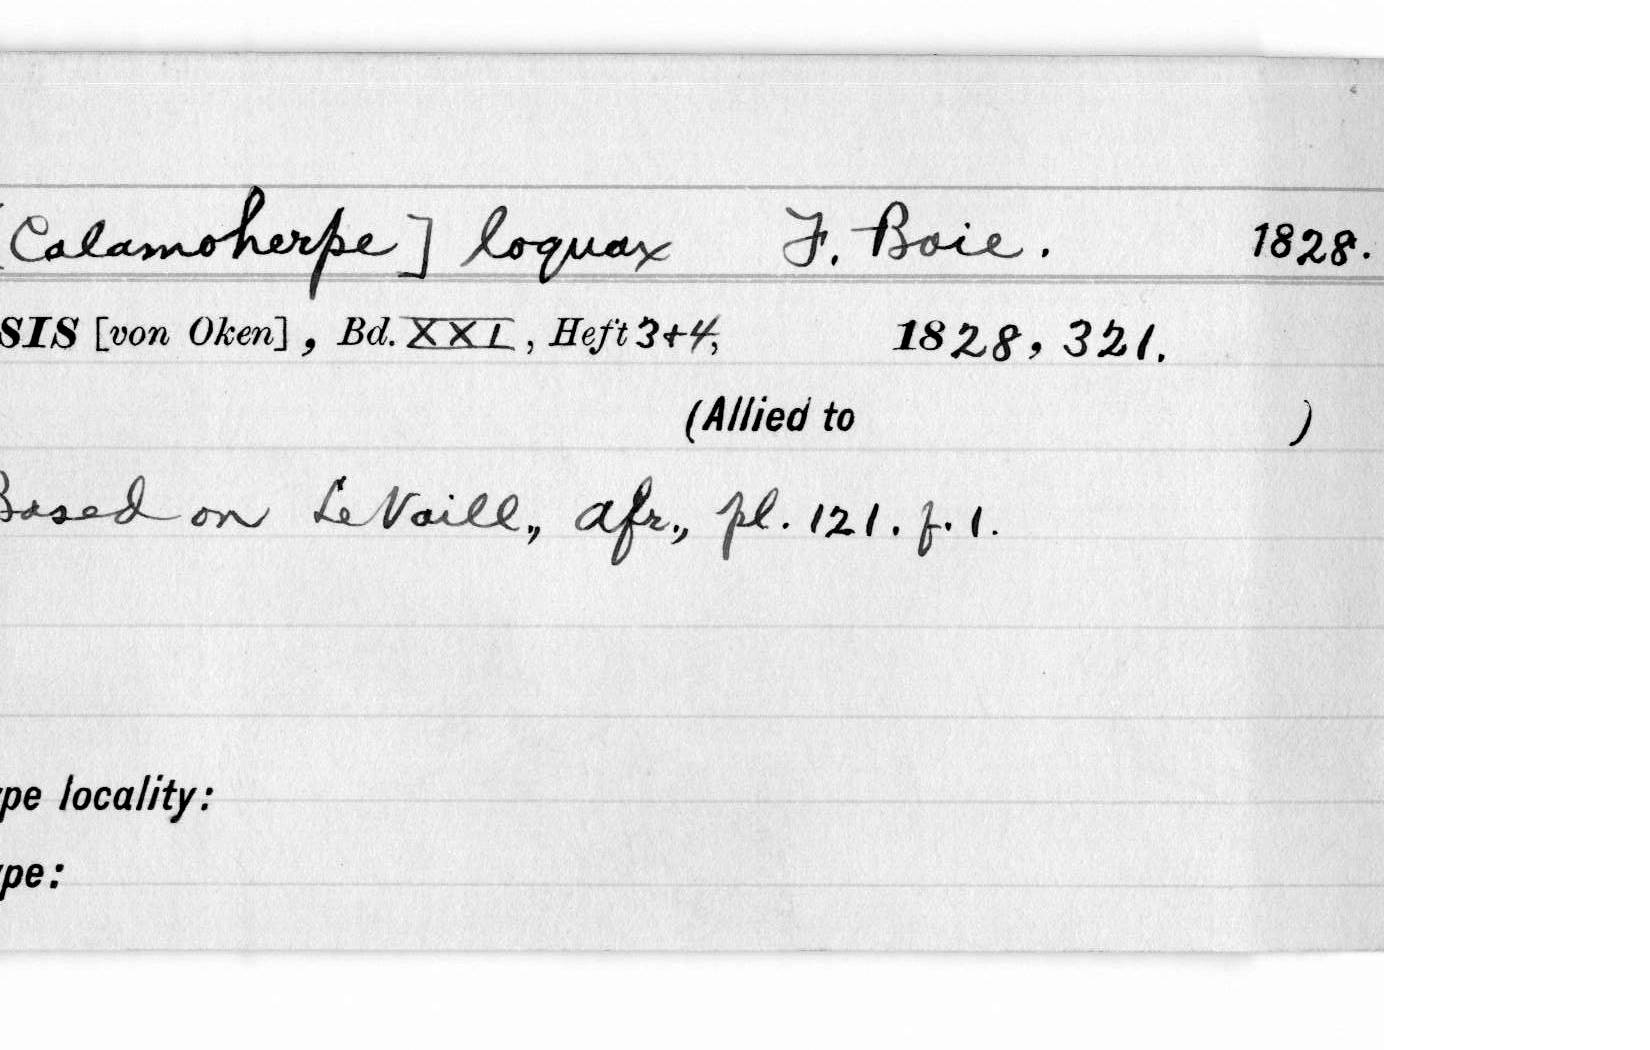 [Calamoherpe] loquax F. Boie. 1828.
SIS [von Oken], Bd. XXI, Heft 3+4, 1828, 321.
(Allied to )
Based on LeVaill., Afr., pl. 121. f. 1.
ype locality:
ype: